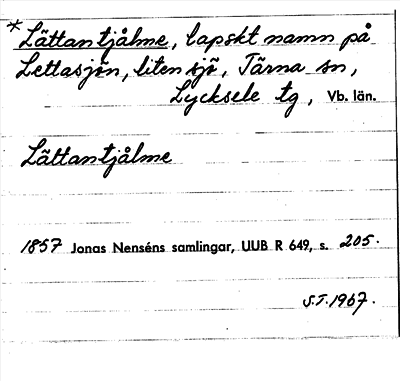 * Lättantjålme, lapskt namn på
Lettasjön, liten sjö, Tärna sn,
Lycksele tg, Vb. län.
Lättantjålme
1857 Jonas Nenséns samlingar, UUB R 649, s. 205.
S.T. 1967.